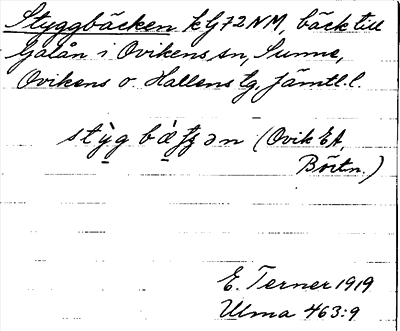 Styggbäcken kG72NM, bäck till
Galån i Ovikens sn, Sunne,
Ovikens o. Hallens tg, Jämtl. l.
(Ovik EA,
Börtn.)
E. Terner 1919
Ulma 463:9